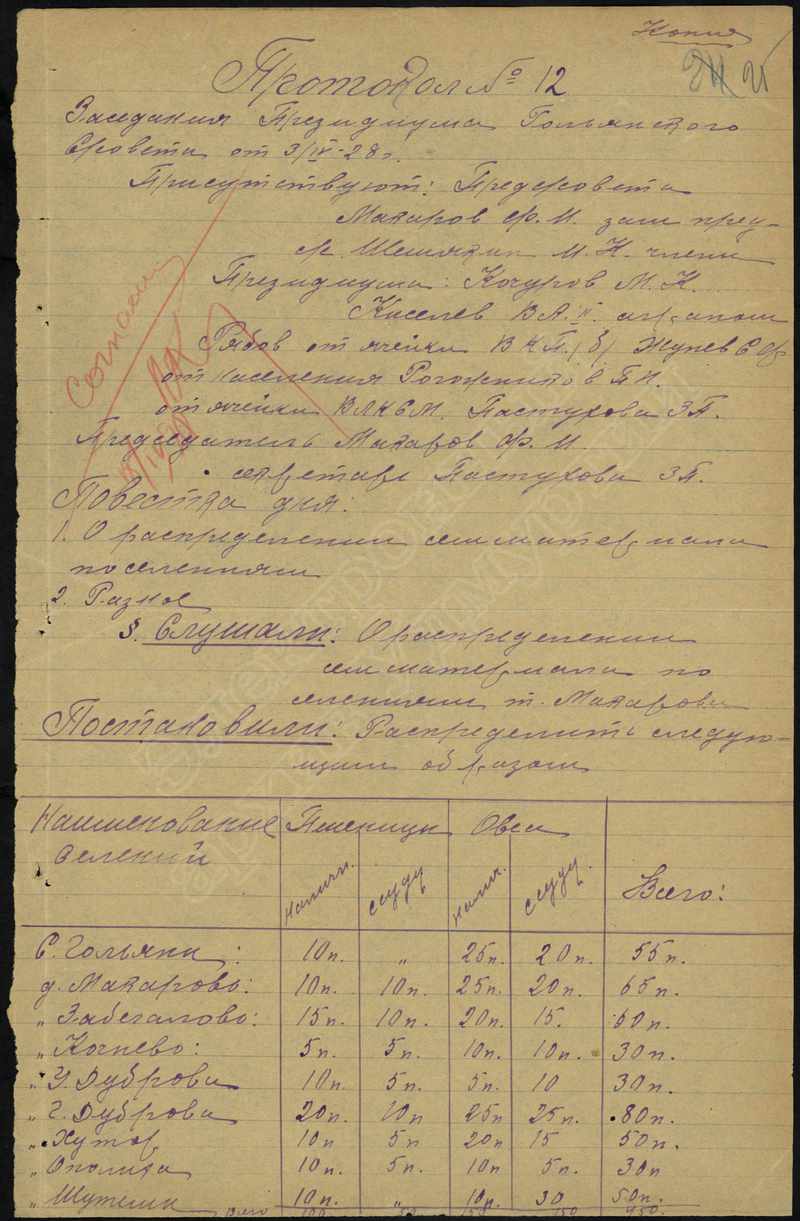 Копия
24 21
Протокол № 12
Заседания Президиума Гольянского
С/совета от 3/IV-28 г.
Присутствуют: Предс/совета
Макаров Ф.И. зам пред-
Шемякин М.Н. члены
Президиума: Кочуров М.К.
Киселев В.А.
Рябов от ячейки ВКП/б/ Жуйев С.Ф.
от населения Рогожников П.И.
от ячейки ВЛКСМ. Пастухова З.П.
Председатель Макаров Ф.И.
секретарь Пастухова З.П.
Повестка дня:
1. О распределении семматериала
по селениям
2. Разное
§. Слушали: О распределении
семматериала по
селениям т. Макарова
Постановили: Распределить следую-
щим образом
Наименование Пшеницы Овса
селений налич. ссуду налич. ссуду. Всего:
С. Гольяны: 10п. „ 25п. 20п. 55п.
д. Макарово: 10п. 10п. 25п. 20п. 65п.
„ Забегалово: 15п. 10п. 20п. 15. 60п.
„ Кочнево: 5п. 5п. 10п. 10п. 30п.
„ У. Дуброва 10п. 5п. 5п. 10 30п.
„ Г. Дуброва 20п. 10п 25п 25п. 80п.
„ Хутор 10п 5п 20п 15 50п.
„ Ополиха 10п. 5п. 10п 5п. 30п
„ Шутели 10п. „ 10п. 30 50п.
Всего 100 50 150 150 450.
Согласен